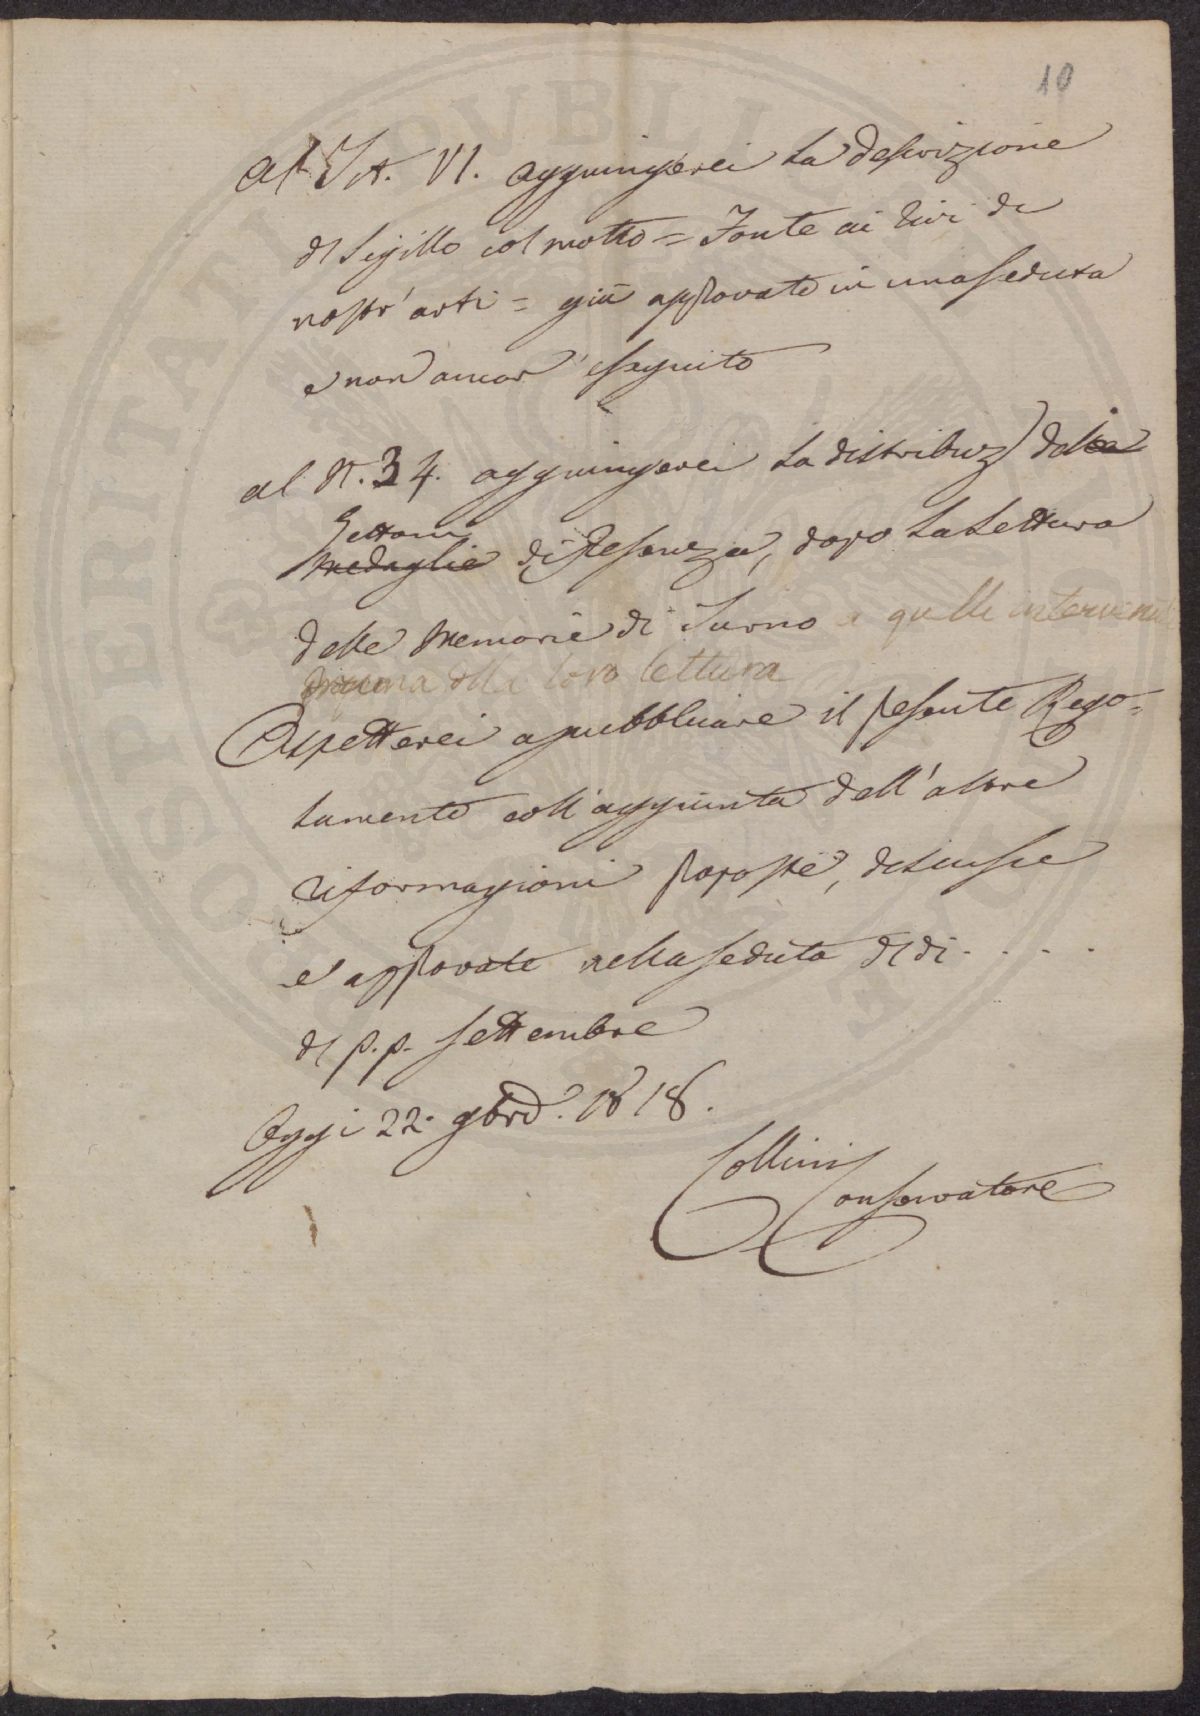 10
al Tit. VI. aggiungerei la descrizione
del Sigillo col motto = Fonte ai rivi di
nostr'arti = già approvato in una seduta
e non ancor eseguito
al N. 34. aggiungerei la distribuz dei
Gettoni
medaglie di Presenza, dopo la Lettura
delle Memorie di Turno a quelli intervenuti
prima della loro lettura
Aspetterei a pubblicare il presente Rego=
lamento coll'aggiunta dell'altre
riformagioni proposte, discusse
e approvate nella seduta del dì . . . .
del p.p. Settembre
Oggi 22. 9bre. 1818.
Collini
Conservatore